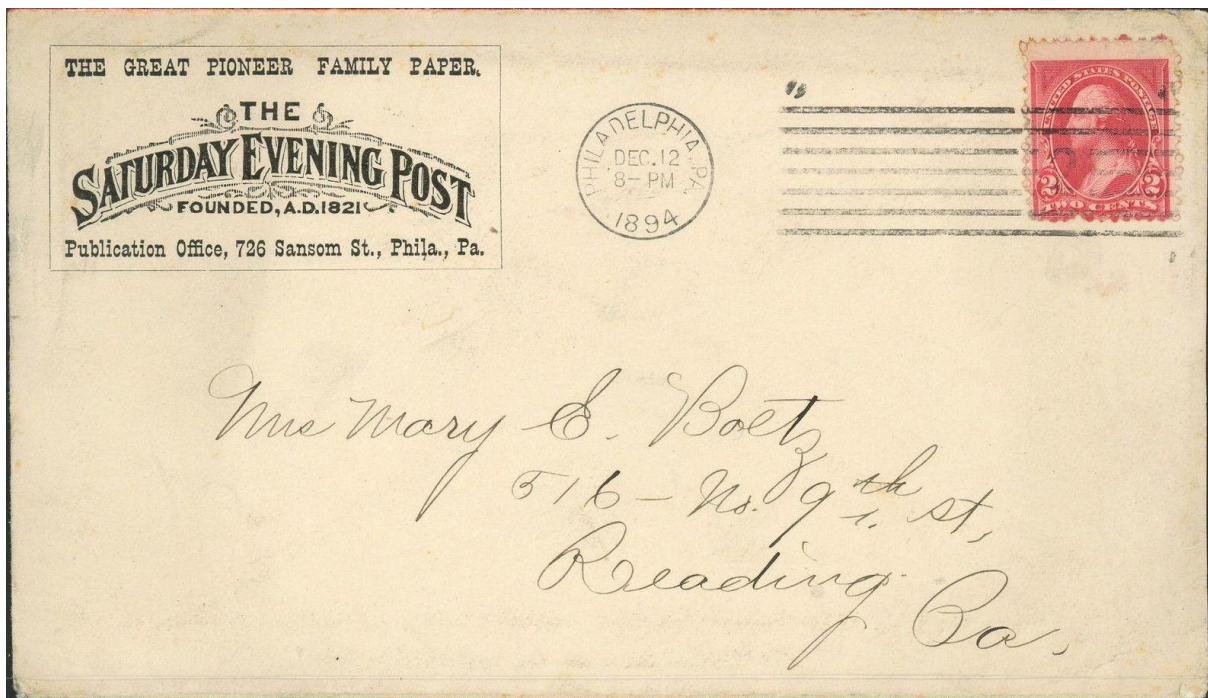 THE GREAT PIONEER FAMILY PAPER.
THE
SATURDAY EVENING POST
FOUNDED, A.D. 1821
Publication Office, 726 Sansom St., Phila., Pa.
PHILADELPHIA, PA.
DEC. 12
8- PM
1894
UNITED STATES POSTAGE
2 2
TWO CENTS
Mrs Mary E. Boltz
516 - No. 9th St,
Reading
Pa.